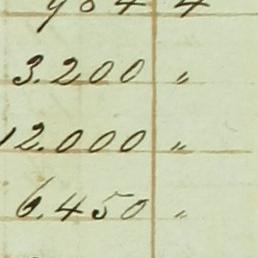 984 4
3.200 "
12.000 "
6.450 "